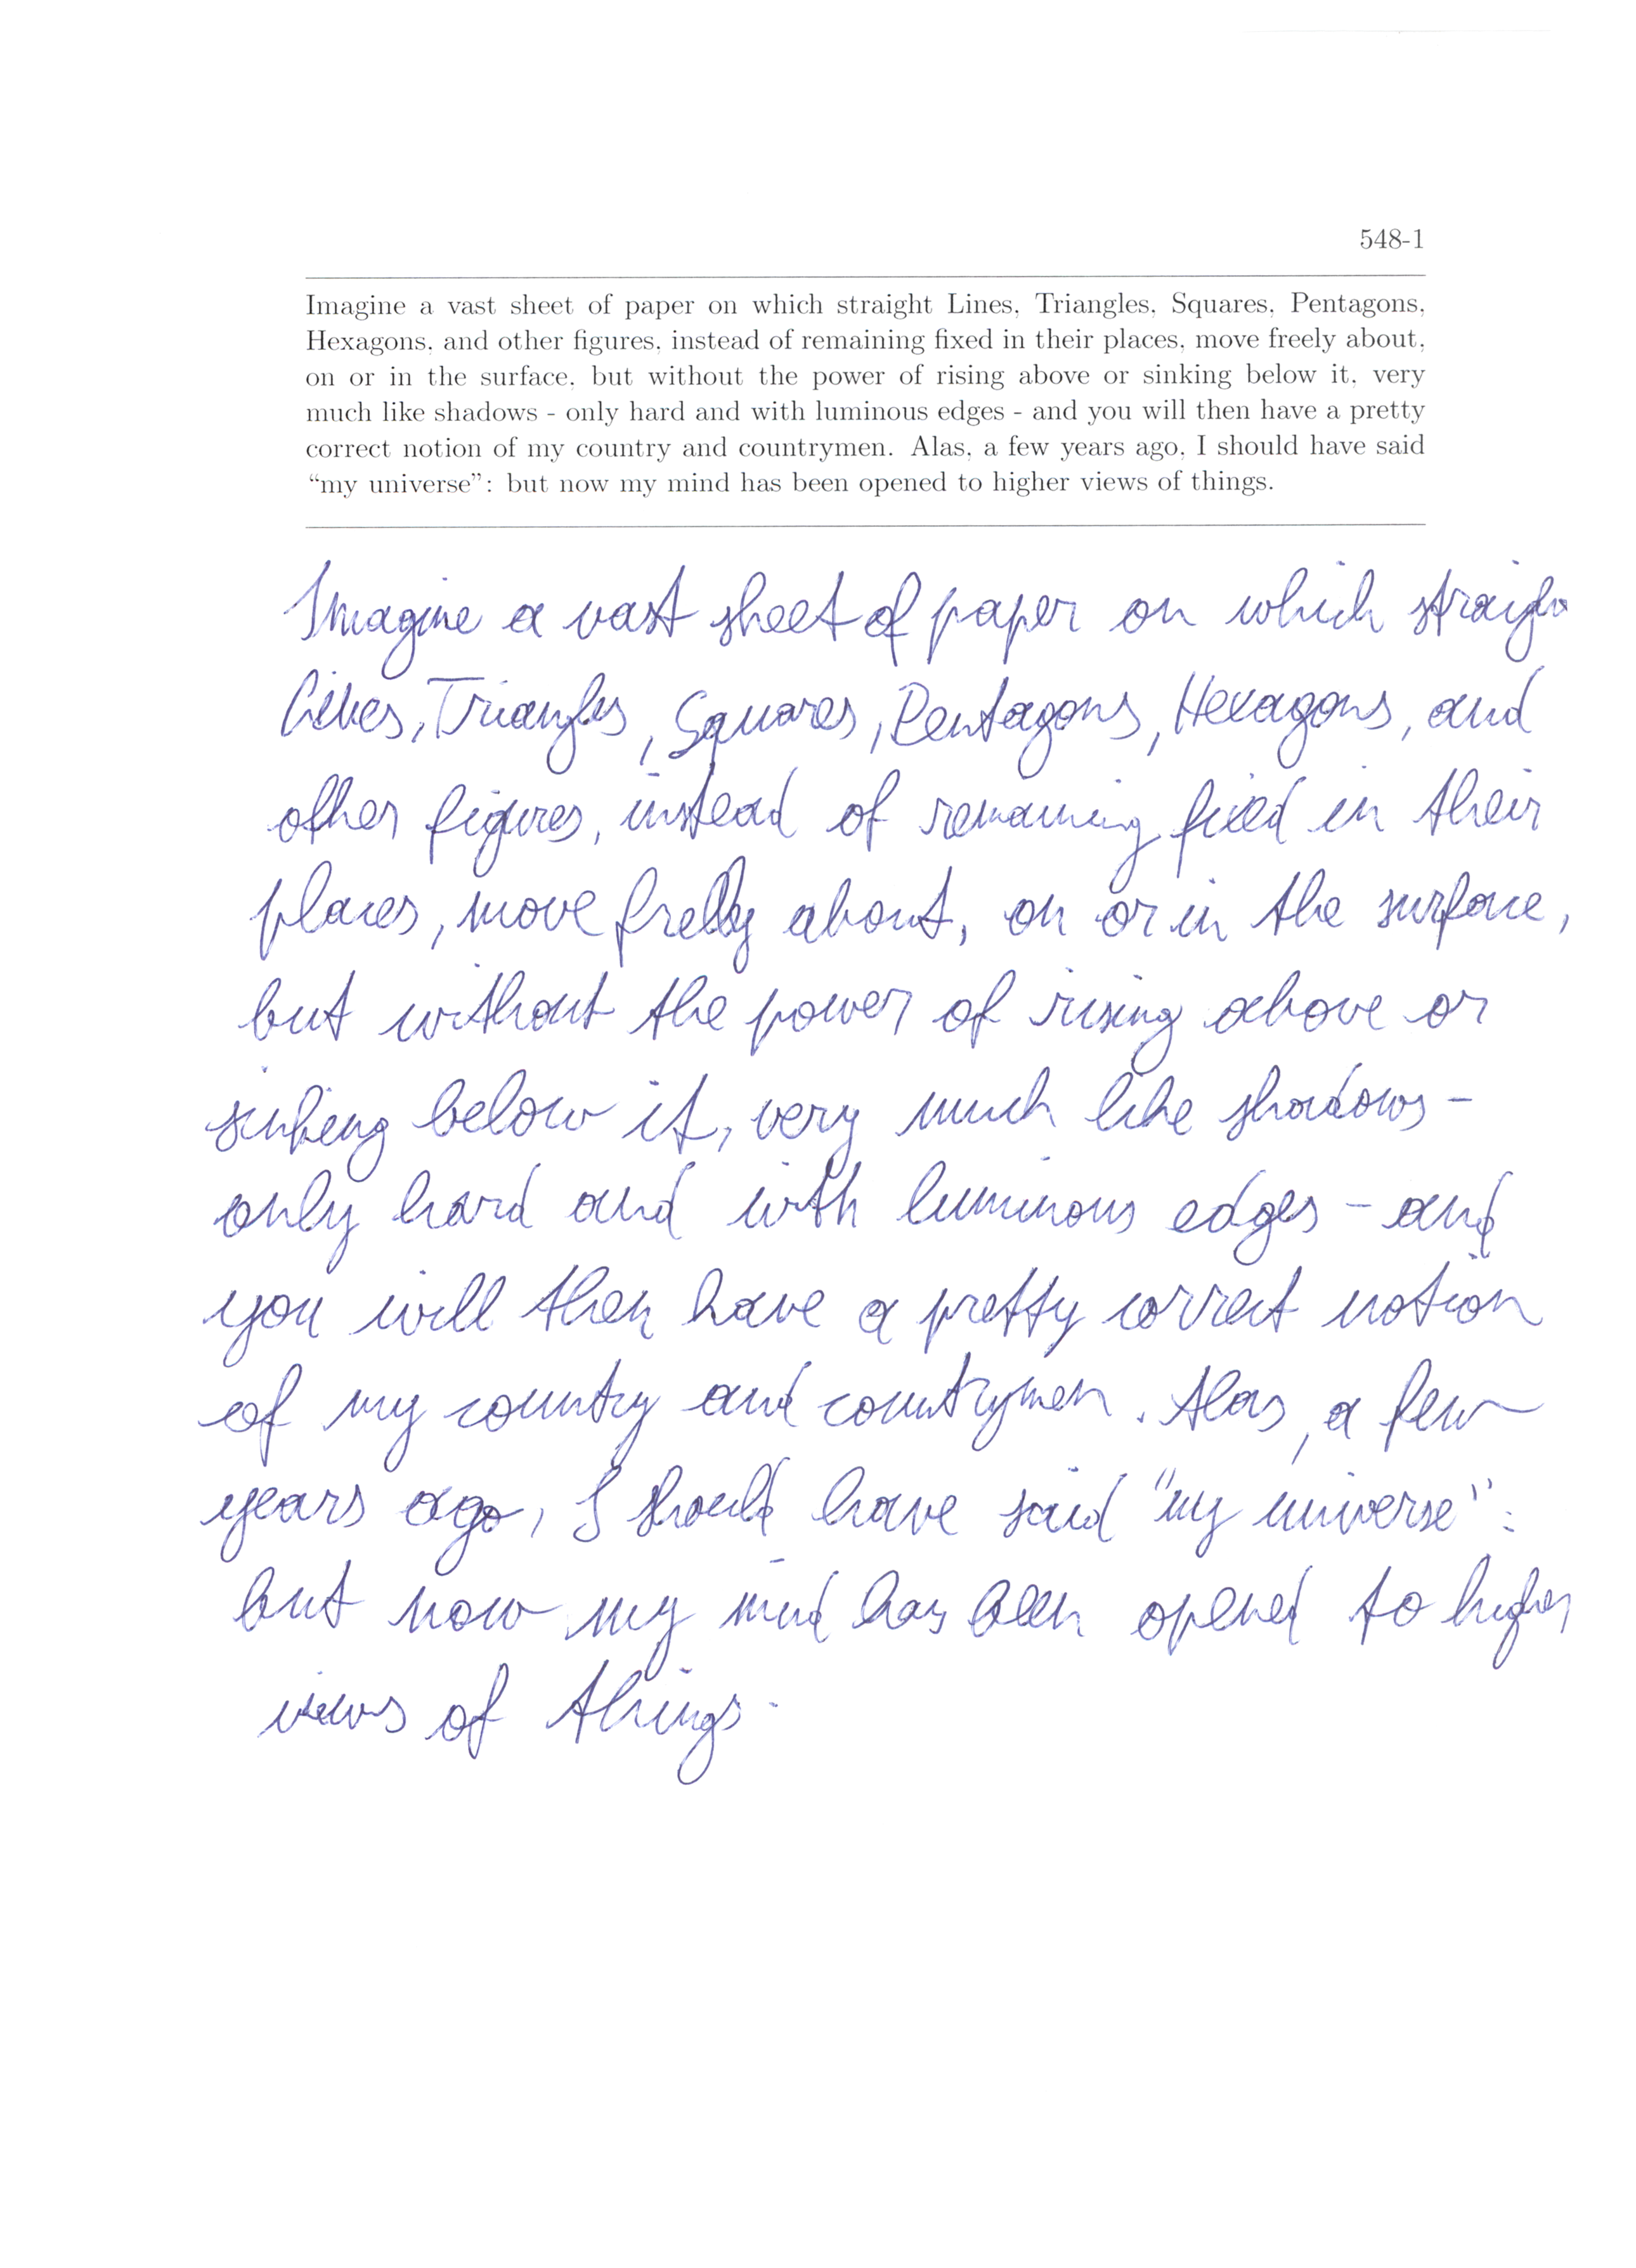 548-1
Imagine a vast sheet of paper on which straight Lines, Triangles, Squares, Pentagons,
Hexagons, and other figures, instead of remaining fixed in their places, move freely about,
on or in the surface, but without the power of rising above or sinking below it, very
much like shadows - only hard and with luminous edges - and you will then have a pretty
correct notion of my country and countrymen. Alas, a few years ago, I should have said
“my universe”: but now my mind has been opened to higher views of things.
Imagine a vast sheet of paper on which straigh
Lines, Triangles, Squares, Pentagons, Hexagons, and
other figures, instead of remaining fixed in their
places, move freely about, on or in the surface,
but without the power of rising above or
sinking below it, very much like shadows -
only hard and with luminous edges - and
you will then have a pretty correct notion
of my country and countrymen. Alas, a few
years ago, I should have said "my universe":
but now my mind has been opened to higher
views of things.